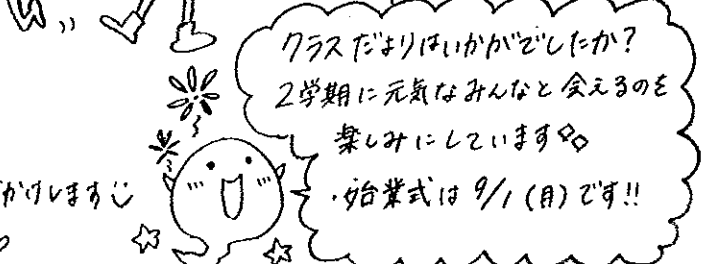 クラスだよりはいかがでしたか?
2学期に元気なみんなと会えるのを
楽しみにしています
・始業式は9/1(月)です!!
かけします